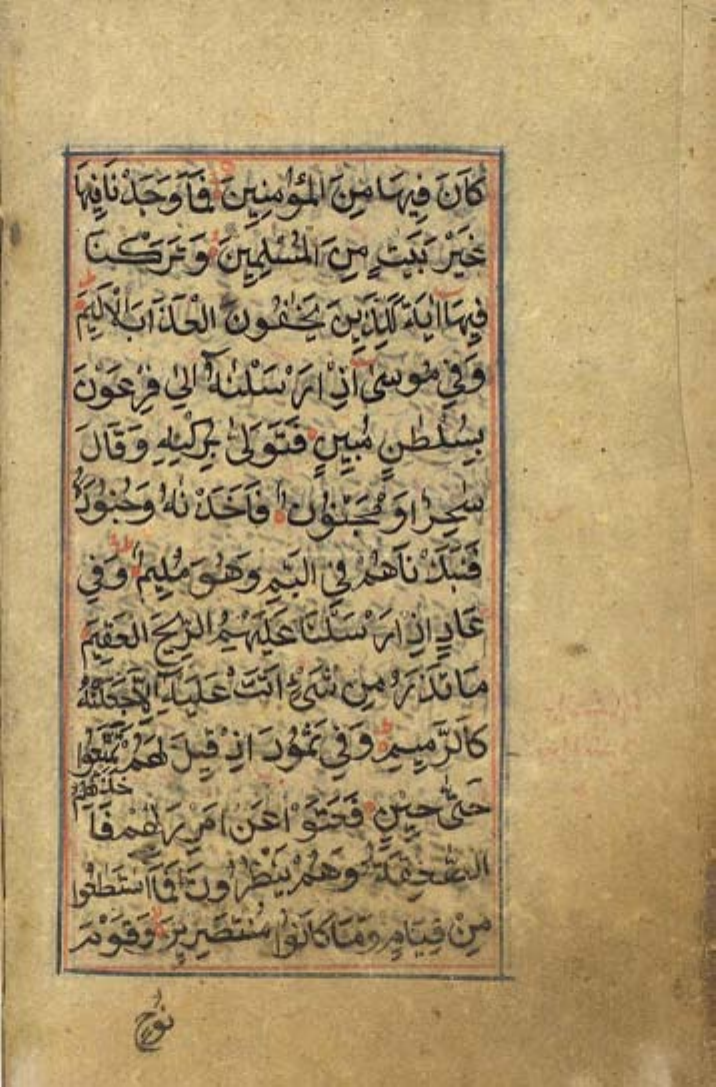 كَانَ فِيهَا مِنَ الْمُؤْمِنِينَ فَمَا وَجَدْنَا فِيهَا
غَيْرَ بَيْتٍ مِنَ الْمُسْلِمِينَ وَتَرَكْنَا
فِيهَا اٰيَةً لِلَّذِينَ يَخَافُونَ الْعَذَابَ الْاَلِيمَ
وَفِي مُوسٰى اِذْ اَرْسَلْنٰهُ اِلٰى فِرْعَوْنَ
بِسُلْطٰنٍ مُبِينٍ فَتَوَلّٰى بِرُكْنِهِ وَقَالَ
سٰحِرٌ اَوْ مَجْنُونٌ فَاَخَذْنٰهُ وَجُنُودَهُ
فَنَبَذْنَاهُمْ فِي الْيَمِّ وَهُوَ مُلِيمٌ وَفِي
عَادٍ اِذْ اَرْسَلْنَا عَلَيْهِمُ الرِّيحَ الْعَقِيمَ
مَا تَذَرُ مِنْ شَيْءٍ اَتَتْ عَلَيْهِ اِلَّا جَعَلَتْهُ
كَالرَّمِيمِ وَفِي ثَمُودَ اِذْ قِيلَ لَهُمْ تَمَتَّعُوا
حَتّٰى حِينٍ فَعَتَوْا عَنْ اَمْرِ رَبِّهِمْ فَاَخَذَتْهُمُ
الصّٰعِقَةُ وَهُمْ يَنْظُرُونَ فَمَا اسْتَطٰعُوا
مِنْ قِيَامٍ وَمَا كَانُوا مُنْتَصِرِينَ وَقَوْمَ
نُوحٍ